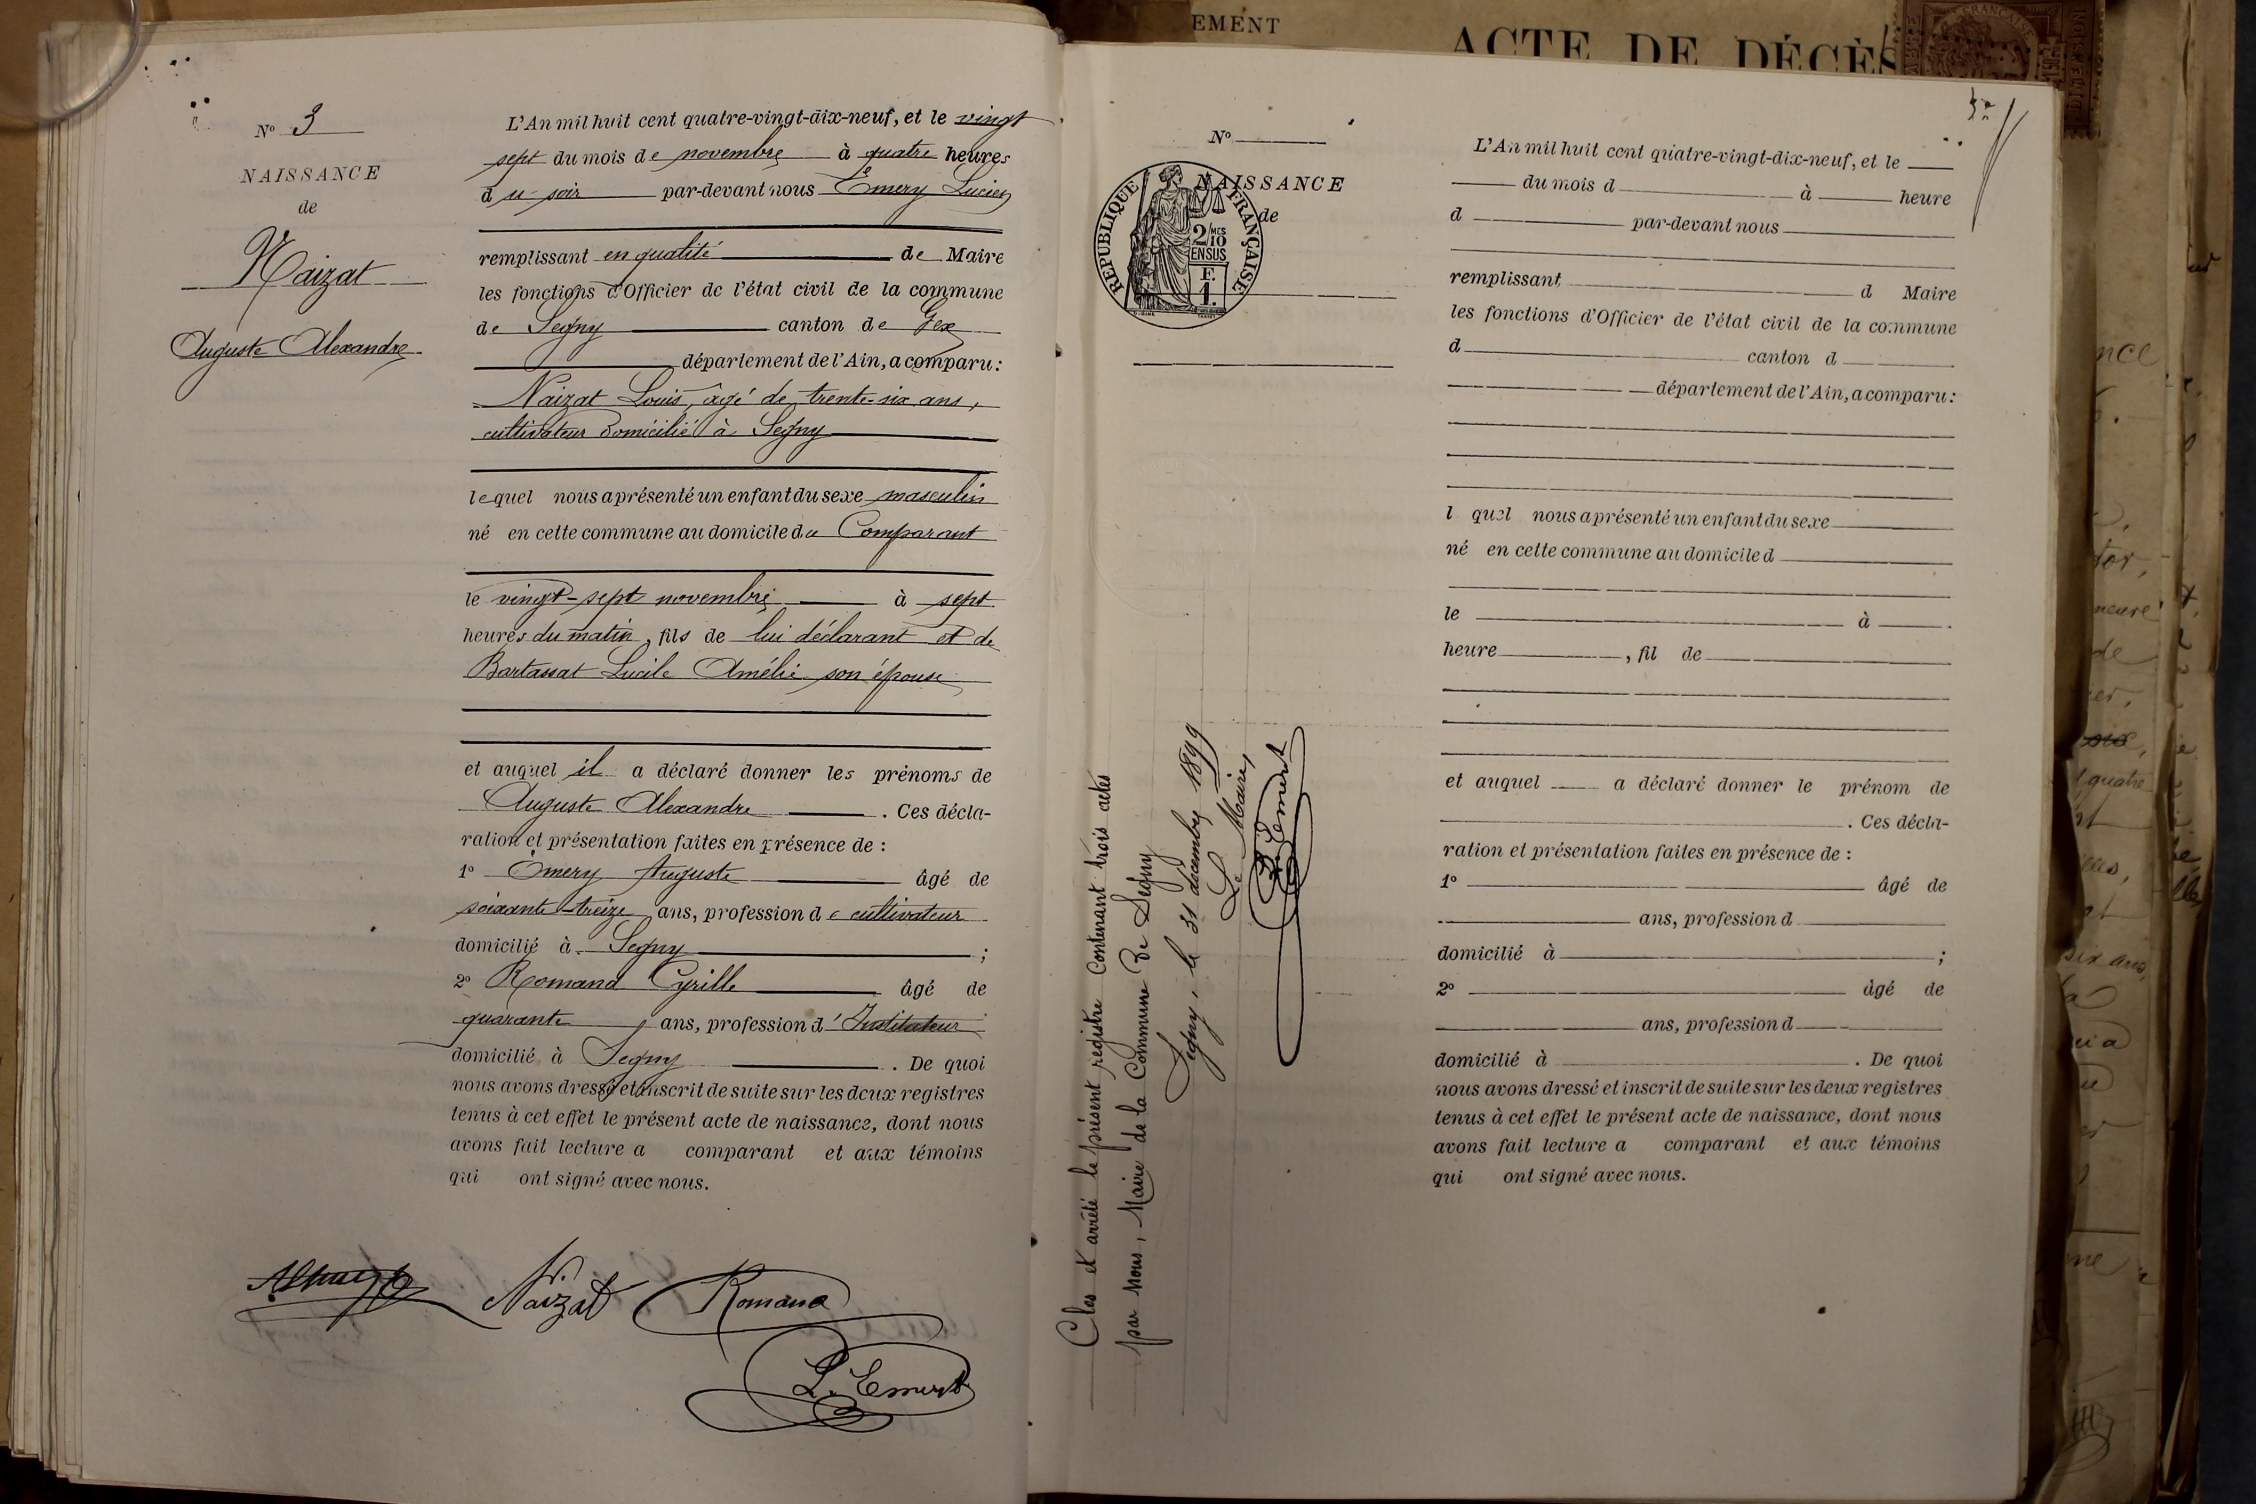 EMENT
ACTE DE DÉCÈS
Nº 3
NAISSANCE
de
Naizat
Auguste Alexandre
L'An mil huit cent quatre-vingt-dix-neuf, et le vingt
sept du mois de novembre à quatre heures
du soir par-devant nous Emery Lucien
remplissant en qualité de Maire
les fonctions d'Officier de l'état civil de la commune
de Segny canton de Gex
département de l'Ain, a comparu:
Naizat Louis, âgé de trente-six ans,
cultivateur domicilié à Segny
lequel nous a présenté un enfant du sexe masculin
né en cette commune au domicile du Comparant
le vingt-sept novembre à sept
heures du matin, fils de lui déclarant et de
Bartassat Lucile Amélie son épouse
et auquel il a déclaré donner les prénoms de
Auguste Alexandre. Ces décla-
ration et présentation faites en présence de :
1º Emery Auguste âgé de
soixante-treize ans, profession de cultivateur
domicilié à Segny ;
2º Romand Cyrille âgé de
quarante ans, profession d'Instituteur
domicilié à Segny. De quoi
nous avons dressé et inscrit de suite sur les deux registres
tenus à cet effet le présent acte de naissance, dont nous
avons fait lecture a comparant et aux témoins
qui ont signé avec nous.
Naizat Romand
L. Emery
Clos et arrêté le présent registre contenant trois actes
par nous, Maire de la Commune de Segny
Segny, le 31 décembre 1899
Le Maire,
L. Emery
Nº
NAISSANCE
de
RÉPUBLIQUE FRANÇAISE
2/10 MES
EN SUS
F.
1.
L'An mil huit cent quatre-vingt-dix-neuf, et le
du mois d à heure
d par-devant nous
remplissant d Maire
les fonctions d'Officier de l'état civil de la commune
d canton d
département de l'Ain, a comparu:
l quel nous a présenté un enfant du sexe
né en cette commune au domicile d
le à
heure , fil de
et auquel a déclaré donner le prénom de
. Ces décla-
ration et présentation faites en présence de :
1º âgé de
ans, profession d
domicilié à ;
2º âgé de
ans, profession d
domicilié à . De quoi
nous avons dressé et inscrit de suite sur les deux registres
tenus à cet effet le présent acte de naissance, dont nous
avons fait lecture a comparant et aux témoins
qui ont signé avec nous.